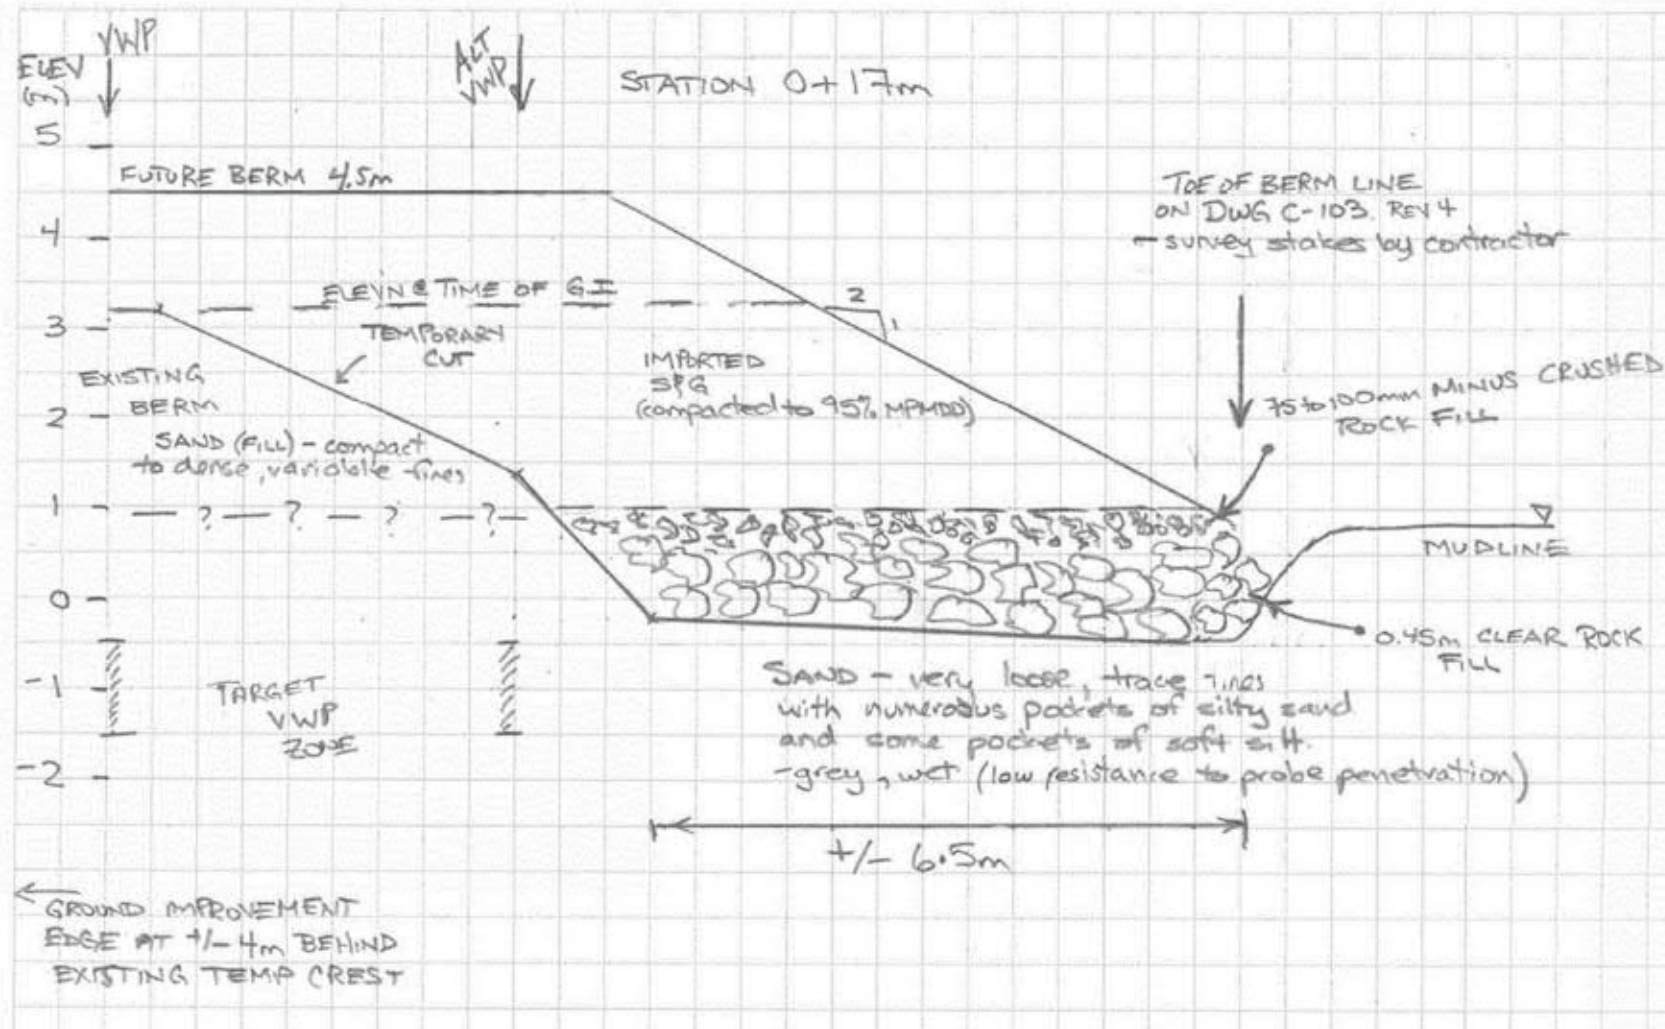 VWP
ELEV
5
4
3
2
1
0
-1
-2
ALT
VWP
STATION 0+17m
FUTURE BERM 4.5m
TOE OF BERM LINE
ON DWG C-103. REV 4
- survey stakes by contractor
ELEV'N @ TIME OF G.I
2
1
TEMPORARY
CUT
IMPORTED
S&G
(compacted to 95% MPMDD)
EXISTING
BERM
SAND (FILL) - compact
to dense, variable fines
? ? ? ?
75 to 100mm MINUS CRUSHED
ROCK FILL
MUDLINE
0.45m CLEAR ROCK
FILL
TARGET
VWP
ZONE
SAND - very loose, trace fines
with numerous pockets of silty sand
and some pockets of soft silt.
-grey, wet (low resistance to probe penetration)
+/- 6.5m
GROUND IMPROVEMENT
EDGE AT +/- 4m BEHIND
EXISTING TEMP CREST